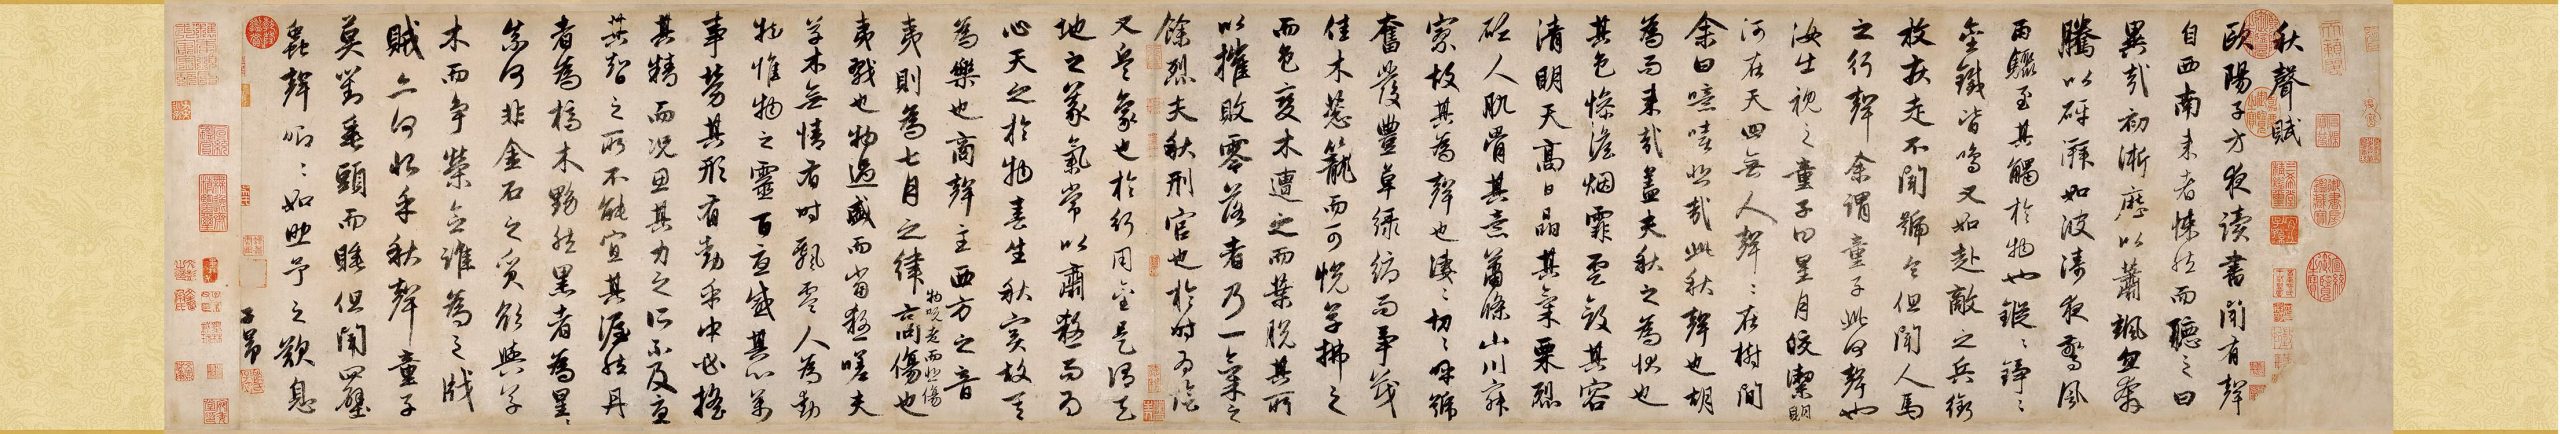 秋聲賦
歐陽子方夜讀書聞有聲
自西南来者悚然而聽之曰
異哉初淅瀝以蕭颯忽奔
騰以砰湃如波濤夜驚風
雨驟至其觸於物也鏦〻錚〻
金鐵皆鳴又如赴敵之兵銜
枚疾走不聞號令但聞人馬
之行聲余謂童子此何聲也
汝出視之童子曰星月皎潔明
河在天四無人聲〻在樹間
余曰噫嘻悲哉此秋聲也胡
為而来哉蓋夫秋之為狀也
其色惨澹烟霏雲斂其容
清明天高日晶其氣栗烈
砭人肌骨其意蕭條山川寂
寥故其為聲也淒〻切〻呼號
奮發豐草綠縟而爭茂
佳木葱籠而可悅草拂之
而色變木遭之而葉脱其所
以摧敗零落者乃一氣之
餘烈夫秋刑官也於時為陰
又兵象也於行用金是謂天
地之義氣常以肅殺而為
心天之於物春生秋實故其
為樂也商聲主西方之音
夷則為七月之律商傷也
物既老而悲傷
夷戮也物過盛而當殺嗟夫
草木無情有時飄零人為動
物惟物之靈百憂感其心萬
事勞其形有動乎中必搖
其精而况思其力之所不及憂
其智之所不能宜其渥然丹
者為槁木黟然黑者為星〻
奈何非金石之質欲與草
木而爭榮念誰為之戕
賊亦何恨乎秋聲童子
莫對垂頭而睡但聞四壁
蟲聲唧〻如助予之歎息
子昂